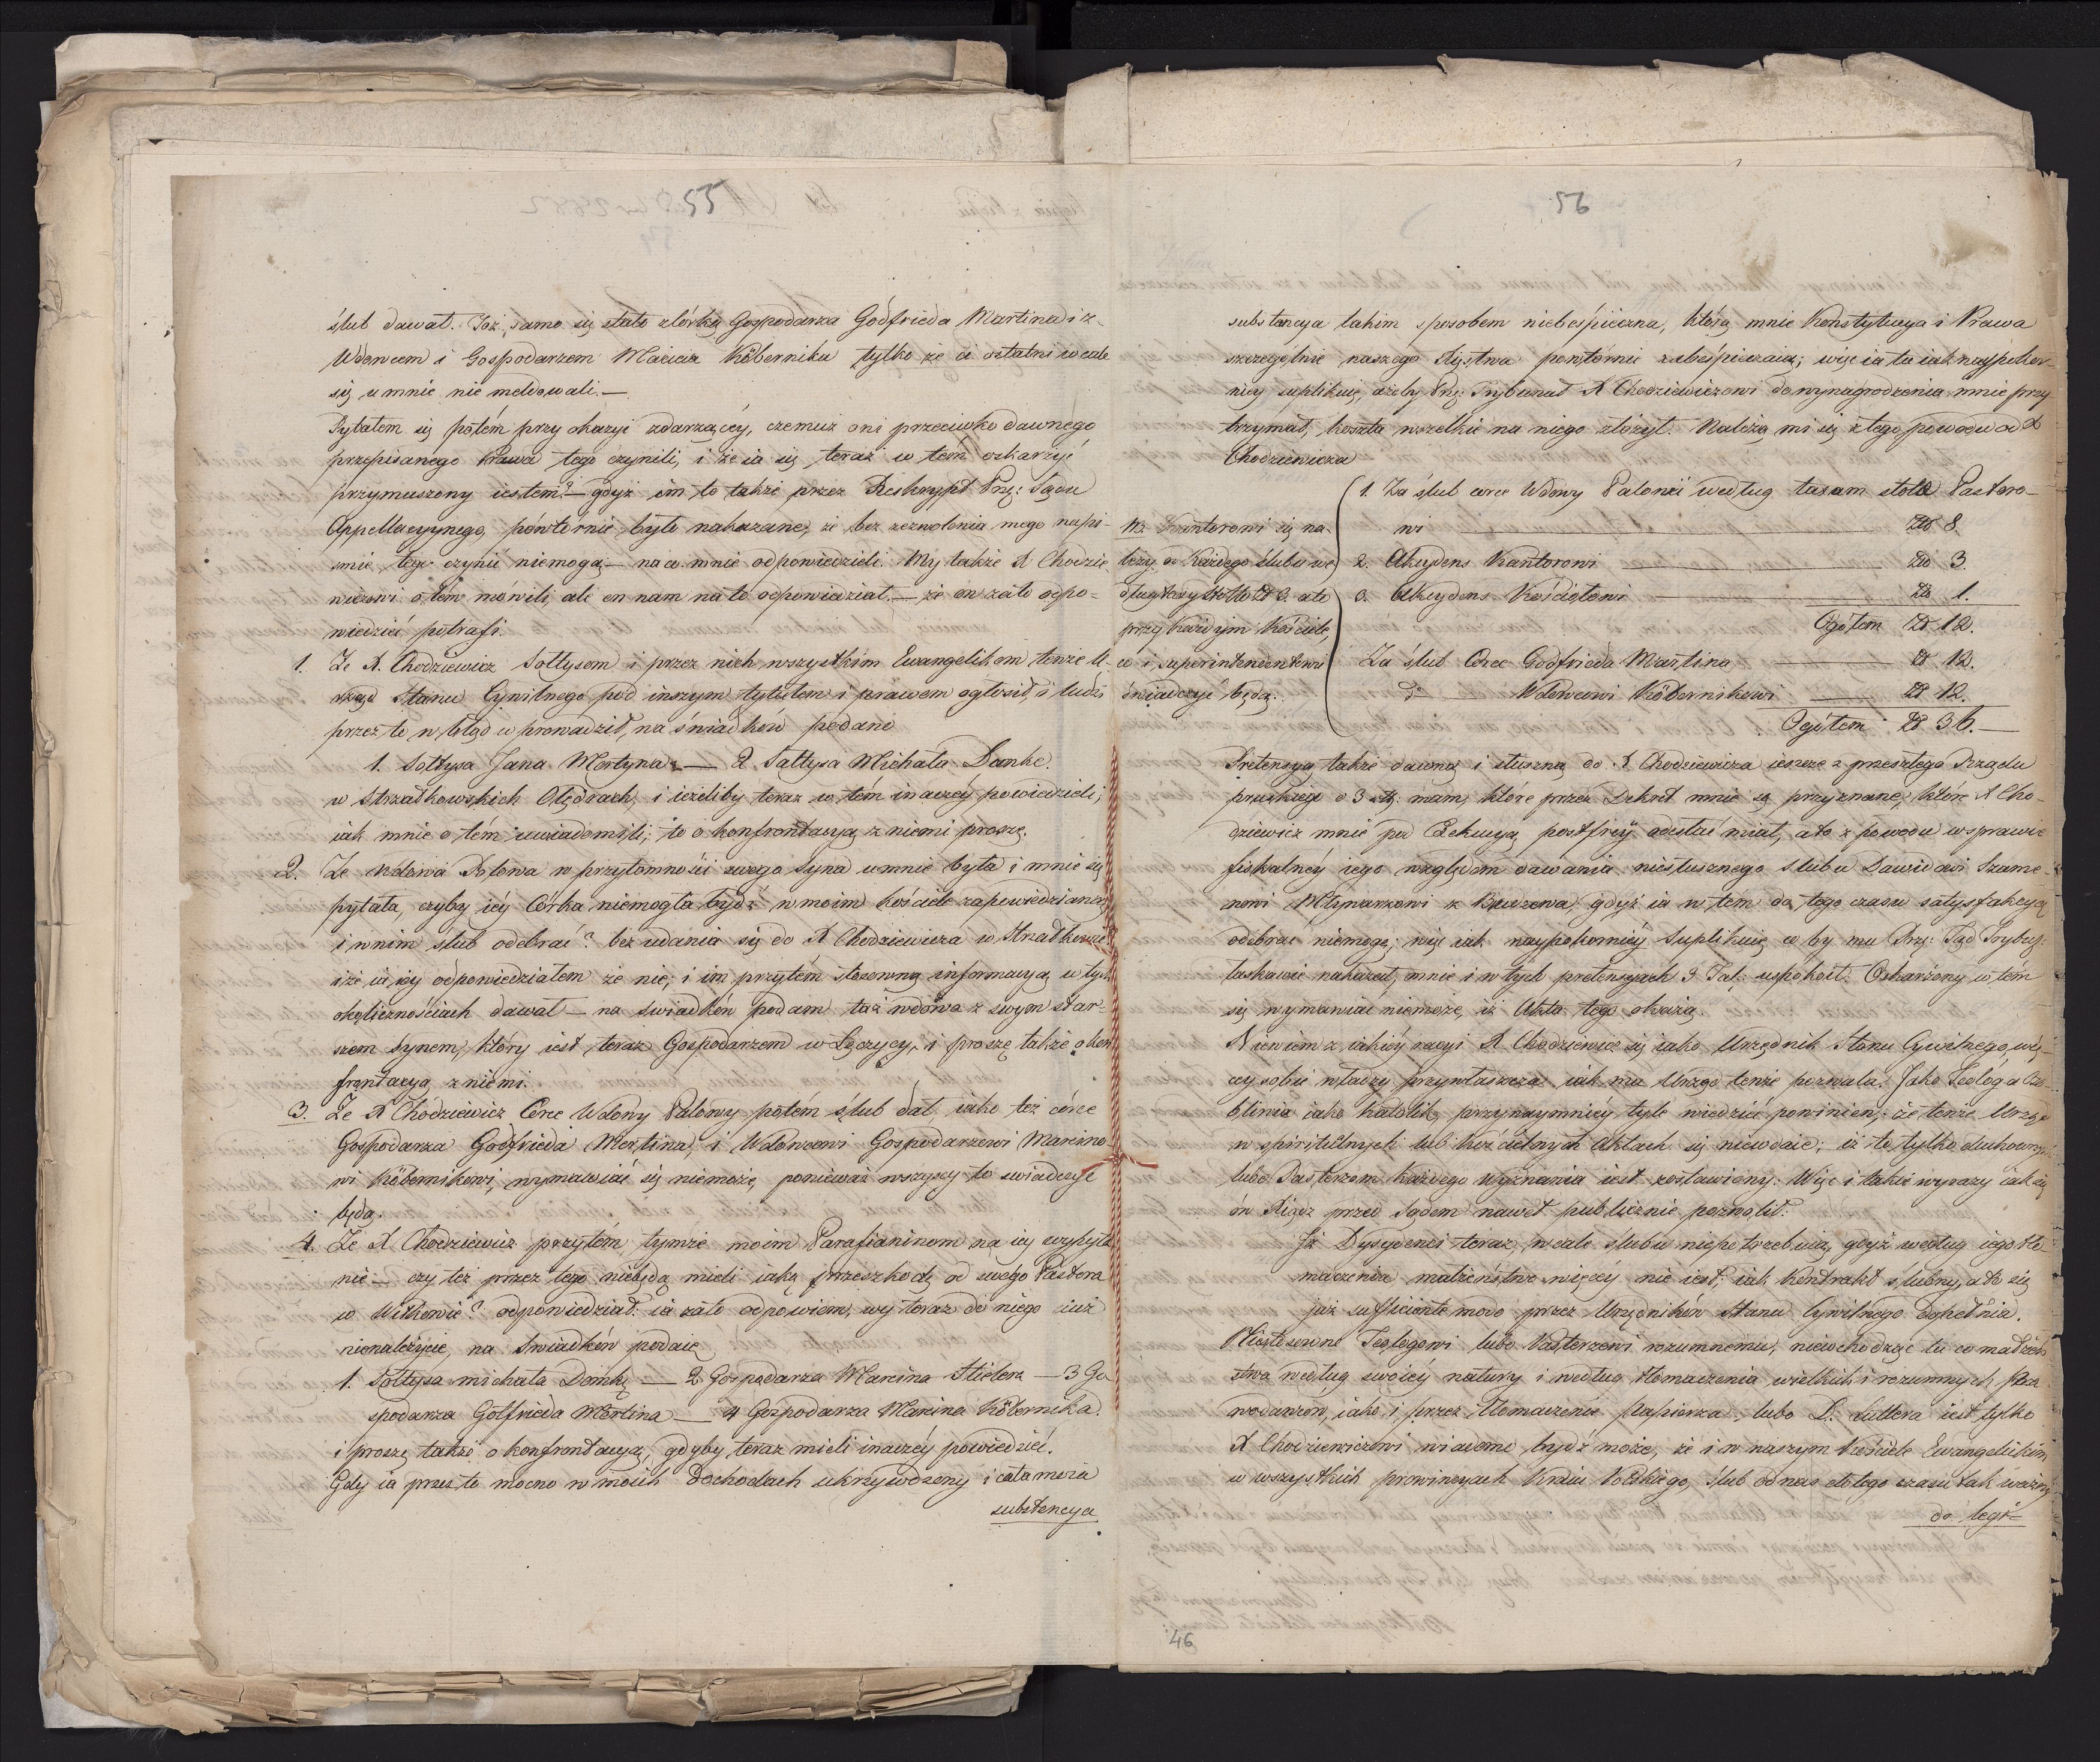 55
ślub dawał. Toż samo się stało zlórką Gospodarza Godfrieda Martina i z
Wdowcem i Gospodarzem Macieia Köberniku tylko że ci ostatni wcale
się u mnie nie meldowali.—
Pytałem się potém przy okazyi zdarzaiącéy, czemuż oni przeciwko dawnego
przepisanego Prawa tego czynili, i że ia się teraz w tém oskarżyć
przymuszony iestem?— gdyż im to także przez Reskrypt Prz: Sądu
Appellacyynego, powtórnie było nakazane, że bez zezwolenia mego na pi-
smie, tego czynić niemogą— na co mnie odpowiedzieli: My także X Chodzie
wiczowi o tém mówili, ale on nam na to odpowiedział.— że on zato odpo-
wiedzieć potrafi.
1. Że X. Chodziewicz Sołtysom i przez nich wszystkim Ewangelikom tenże U-
rząd Stanu Cywilnego pod inszym tytułem i prawem ogłosił, i ludzi
przez to w błąd wprowadził, na świadków podano
1. Sołtysa Jana Mertyna — 2 Sałtysa Michała Danke
w Strzałkowskich Olędrach, i ieżeliby teraz w tém inaczéy powiedzieli,
iak mnie o tém uwiadomili; to o konfrontacyą z niemi proszę.
2. Że Wdowa Palowa w przytomności swego Syna u mnie była i mnie się
pytała, czyby iéy Córka niemogła bydź w moim kościele zapowiedzianą,
i w nim ślub odebrać? bez udania się do X Chodziewicza w Strzałkowie?
i że ia iéy odpowiedziałem że nie; i im przytém stosowną informacyą w tych
okolicznościach dawał— na świadków podam taż wdowa z swym star-
szem Synem, który iest teraz Gospodarzem w Łęczycy, i proszę także o kon
frontacyą z niemi.
3. Że X Chodziewicz Córce Wdowy Palowy potém ślub dał iako też córce
Gospodarza Godfrieda Mertina, i Wdowcowi Gospodarzewi Marcino-
wi Köbernikowi, wymawiać się niemoże, ponieważ wszyscy to świadczyć
będą.
4. Że X Chodziewicz przytém, tymże moim Parafianinom na iéy
nie— czy też przez tego niebędą mieli iaką przeszkodę od swégo Pastora
w Witkowie? odpowiedział: ia zato odpowiem, wy teraz do niego iuż
nienależycie, na Swiadków podaię
1. Sołtysa michała Domkę — 2 Gospodarza Marcina Stielera — 3 Go
spodarza Gotfrieda Mertina — 4 Gospodarza Marcina Köbernika.
i proszę także o konfrontacyą, gdyby teraz mieli inaczéy powiedzieć.
Gdy ia przez to mocno w moich Dochodach ukrzywdzony i cała moia
substencya
56
substancya takim sposobem niebespieczna, którą mnie Konstytucya i Prawa
szczególnie naszego Xięstwa powtórnie zabespieczaią; więc ia ta iak naypokor-
niey suplikuię, ażeby Prz: Trybunał X Chodziewiczowi do wynagrodzenia mnie przy
trzymał, koszta wszelkie na niego złożył. Należą mi się z tego powodu od X
Chodziewicza
1. Za ślub córce Wdowy Palowéi według taxam stola Pastoro-
wi — Zł 8.
2. Akcydens Kantorowi — Zł 3.
3. Akcydens Kościołowi — Zł 1.
Ogółem Zł 12.
NB. Kantorowi się na-
leży od każdego ślubu we
dług taxy stolla Zł 3. ato
przy każdym Kościele,
co i superintendentowi
świadczyć będą.
Za ślub Córce Godfrieda Martina — Zł 12.
Do — Wdowcowi Köbernikowi — Zł 12.
Ogółem Zł 36.—
Pretensyą także dawną i słuszną do X Chodziewicza ieszcze z przeszłego Rządu
pruskiego o 3 mam, które przez Dekret mnie są przyznane, które X Cho-
dziewicz mnie pod Exekucyą postfrëy odesłać miał, a to z powodu w sprawie
fiskalnéy iego względem dawania niesłusznego ślubu Dawidowi Szame-
nowi Młynarzowi z Brudzewa, gdyż ia w tém do tego czasu satysfakcyą
odebrać niemogę; więc iak naypokorniéy Suplikuię, co by mu Prz: Sąd Trybu:
łaskawie nakazał, mnie i w tych pretensyach 3 Tal: uspokoił. Oskarżony w tém
się wymawiać niemoże, iż Akta tego okażą.
Niewiem z iakiéy racyi X Chodziewicz się iako Urzędnik Stanu Cywilnego, wię-
céy sobie władzy przywłaszcza iak mu Urząd tenże pozwala. Jako Teolog a
iako Katolik, przynaymniéy tyle wiedzieć powinien, że tenże Urząd
w spiritualnych lub kościelnych Aktach się niewdaie; iż to tylko duchownym
lubo Pasterzom każdego Wyznania iest zostawiony. Więc i takie wyrazy iak się
ón Xiądz przed Sądem nawet publicznie pozwolił:
Iż Dyssydenci teraz wcale ślubu niepotrzebuią, gdyż według iego tło-
maczenia małżeństwo więcéy nie iest, iak Kontrakt ślubny, a to się
już sufficiente modo przez Urzędników Stanu Cywilnego dopełnia.
Teologowi lubo Pasterzowi rozumnemu, niewchodząc tu co małżeń-
stwa według swoiéy natury i według tłomaczenia wielkich i rozumnych Pra
wodawców, iako i przez tłomaczenie Papieża lubo D. Luttera iest tylko
X Chodziewiczowi wiadomo bydź może, że i w naszym Kościele Ewangelickim
w wszystkich prowincyach Kraiu Polskiego, Slub od nas do tego czasu tak ważny
do legi-
46